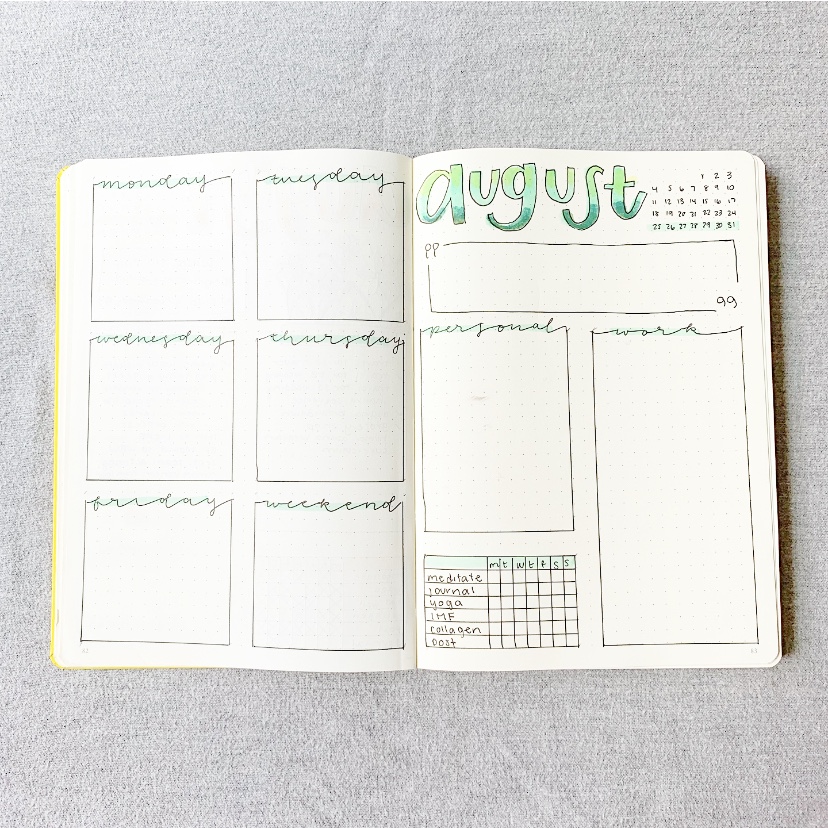 monday
tuesday
wednesday
thursday
friday
weekend
august
1 2 3
4 5 6 7 8 9 10
11 12 13 14 15 16 17
18 19 20 21 22 23 24
25 26 27 28 29 30 31
personal
work
m t w t f s s
meditate
journal
yoga
IMF
collagen
post
63